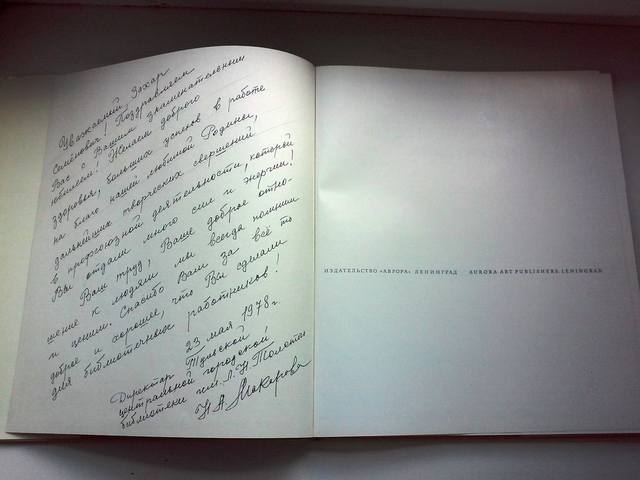 Уважаемый Захар
Семёнович! Поздравляем
Вас с Вашим знаменательным
юбилеем! Желаем доброго
здоровья, больших успехов в работе
на благо нашей любимой Родины,
дальнейших творческих свершений,
в профсоюзной деятельности, которой
Вы отдали много сил и энергии!
Ваш труд, Ваше доброе отно-
шение к людям мы всегда помним
и ценим. Спасибо Вам за всё то
доброе и хорошее, что Вы сделали
для библиотечных работников!
23 мая 1978 г.
Директор Тульской
центральной городской
библиотеки им. Л. Н. Толстого
Н. А. Макарова
ИЗДАТЕЛЬСТВО «АВРОРА» ЛЕНИНГРАД AURORA ART PUBLISHERS·LENINGRAD